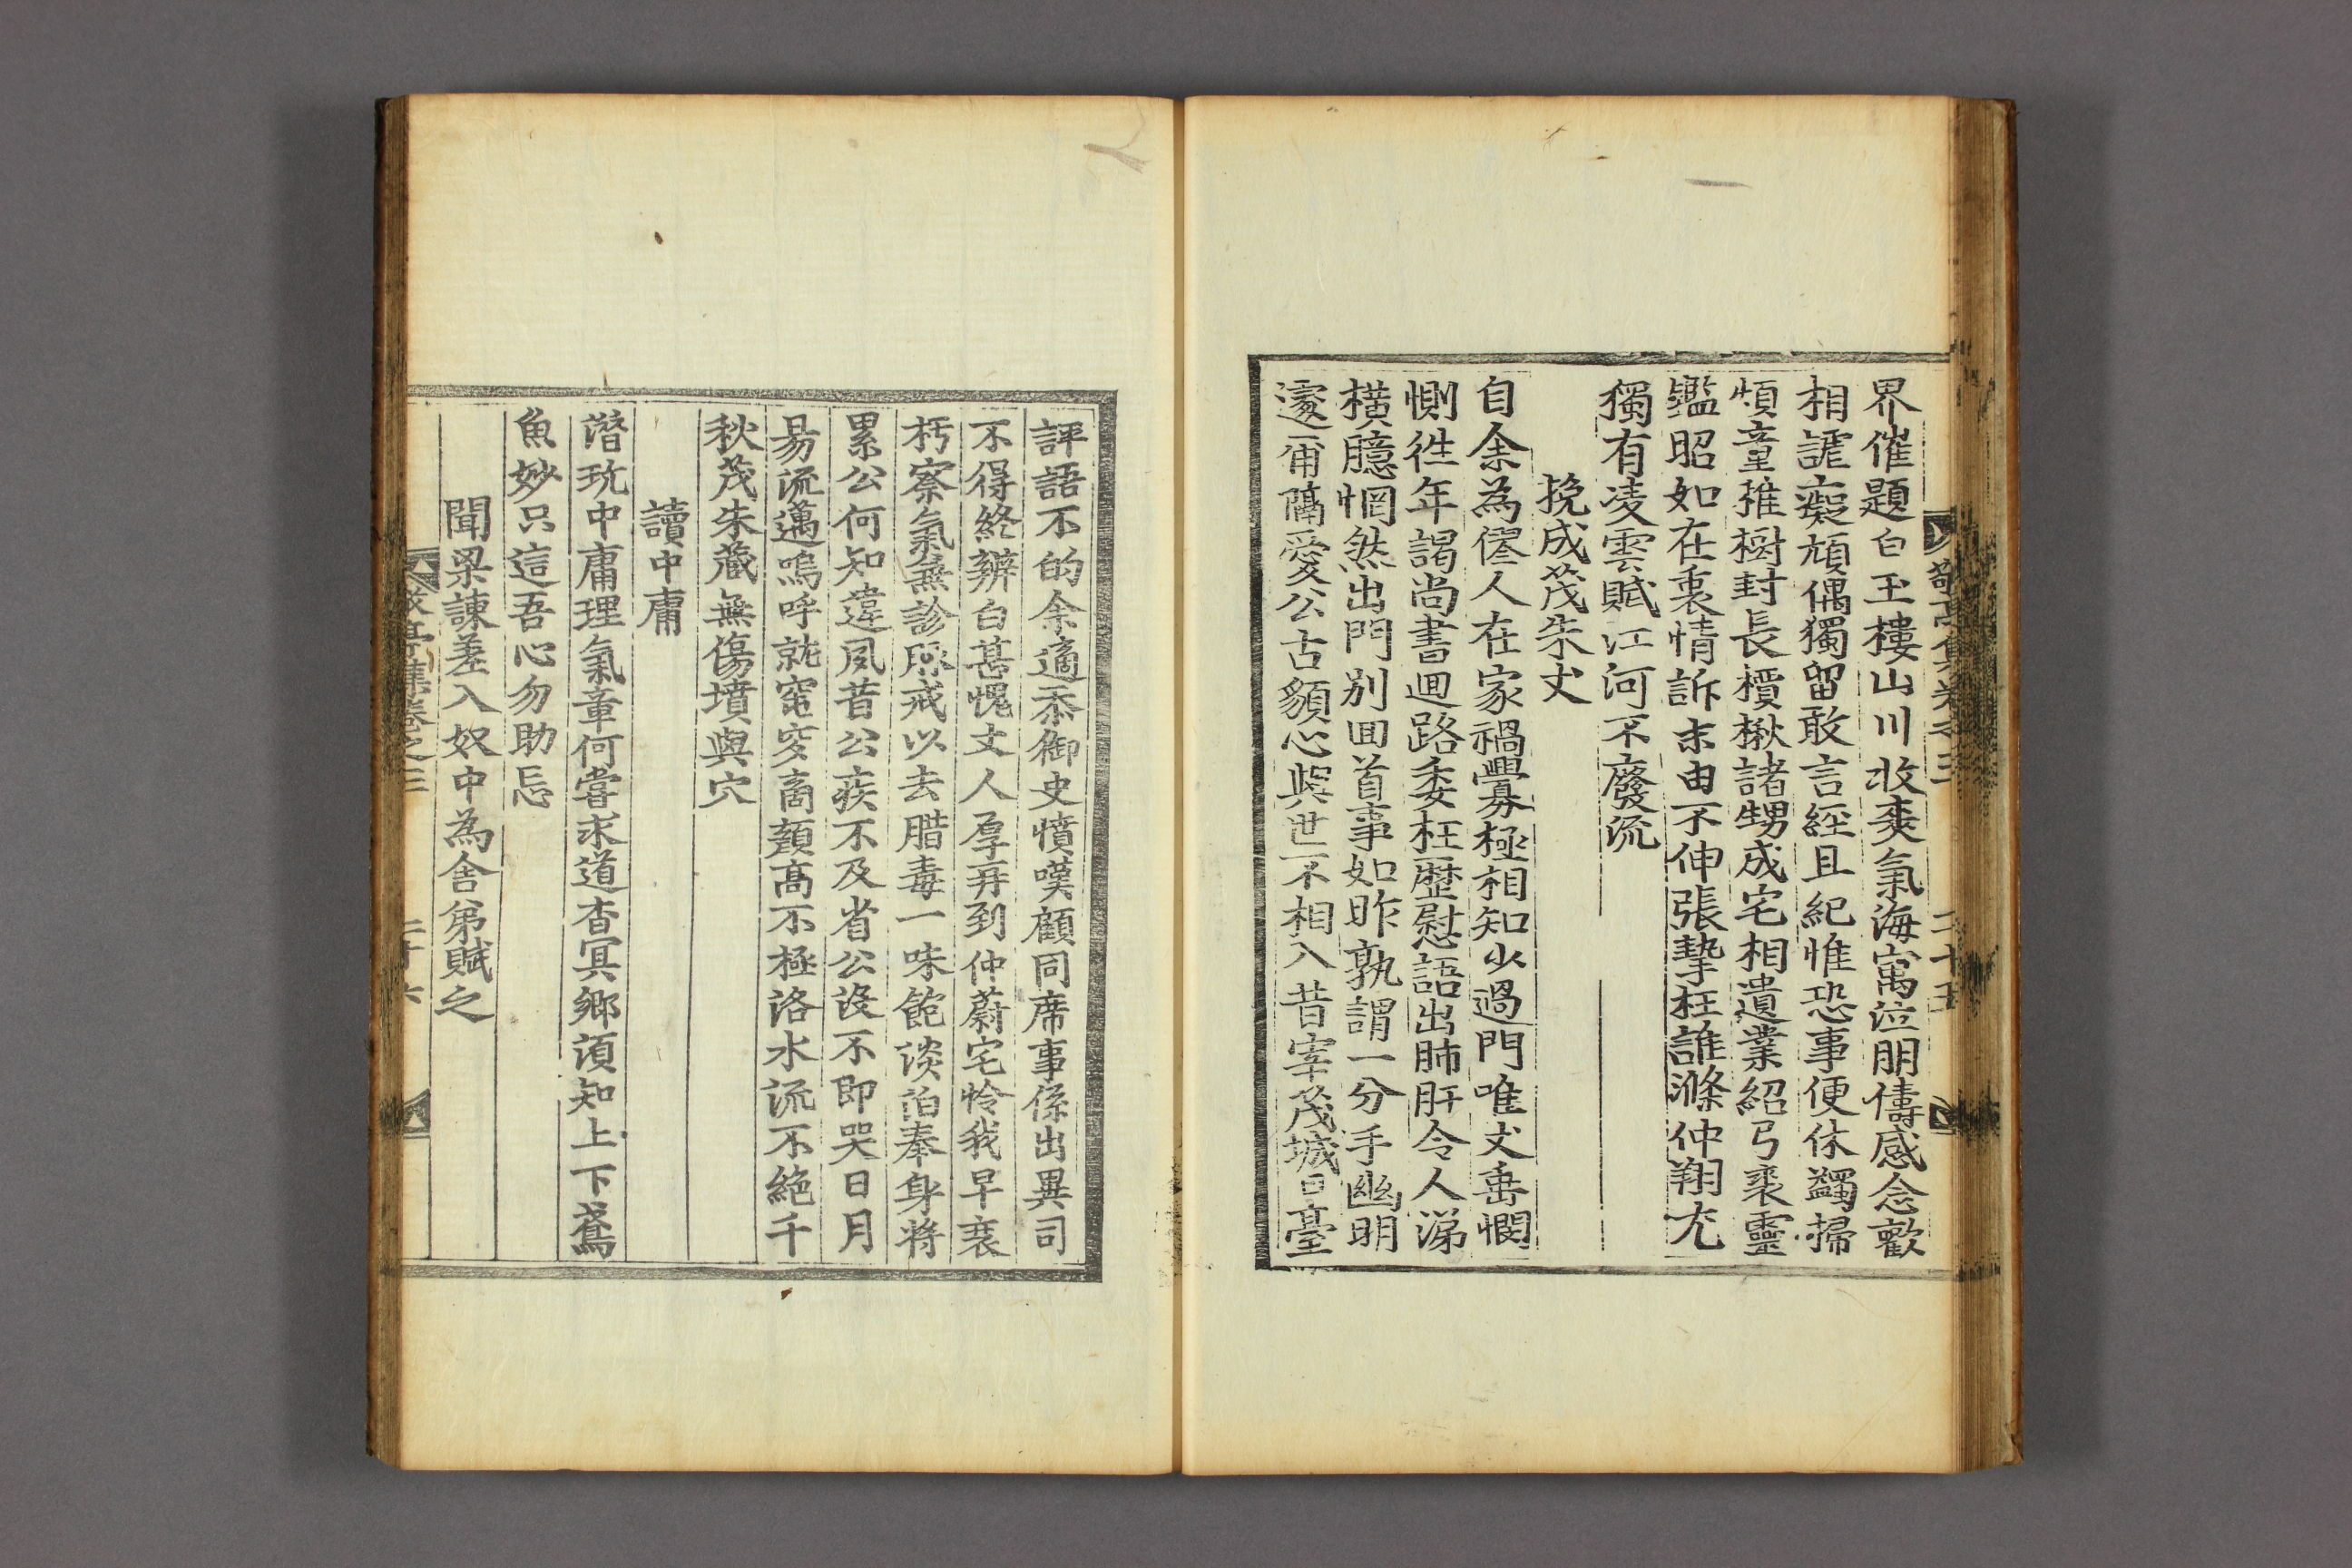 界催題白玉樓山川收爽氣海寓泣朋儔感念歡
相謔癡頑偶獨留敢言經且紀惟恐事便休蠲掃
煩童推樹封長檟楸諸甥成宅相遺業紹弓裘靈
鑑昭如在衷情訴末由不伸張摯枉誰滌仲翔尤
獨有凌雲賦江河不廢流
挽成茂朱丈
自余為僇人在家禍釁極相知少過門唯丈垂憫
惻徃年謁尚書迴路委枉歷慰語出肺肝令人涕
橫臆惘然出門別回首事如昨孰謂一分手幽明
遽甭隔愛公古貌心與世不相入昔宰茂城日臺
敬亭集卷之三
二十五
評語不的余適忝御史憤嘆顧同席事係出異司
不得終辨白甚愧丈人厚再到仲蔚宅怜我早衰
朽察氣無診脉戒以去腊毒一味飽淡泊奉身將
累公何知違夙昔公疾不及省公沒不卽哭日月
易流邁嗚呼就窀穸商顏高不極洛水流不絶千
秋茂朱藏無傷墳與穴
讀中庸
潛玩中庸理氣章何嘗求道杳冥鄉須知上下鳶
魚妙只這吾心勿助忘
聞梁諫羞入奴中為舍弟賦之
敬亭集卷之三
二十六